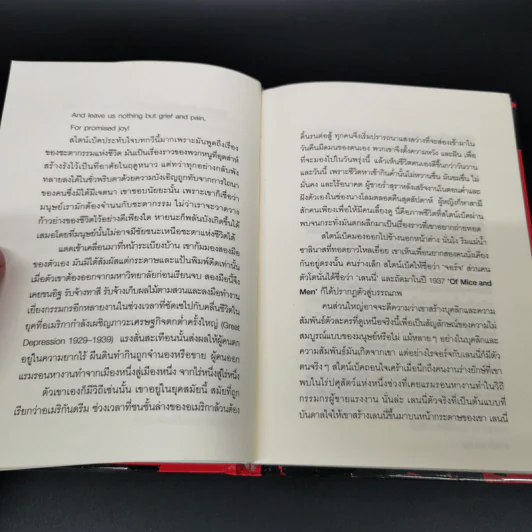 And leave us nothing but grief and pain,
For promised joy!
สไตน์เบ็คประทับใจบทกวีนี้มากเพราะมันพูดถึงเรื่อง
ของชะตากรรมแห่งชีวิต มันเป็นเรื่องราวของพวกหนูที่อุตส่าห์
สร้างรังไว้เป็นที่อาศัยในฤดูหนาว แต่ทว่าทุกอย่างกลับพัง
ทลายลงได้ในชั่วพริบตาด้วยความบังเอิญถูกทับจากการไถนา
ของคนซึ่งมิได้มีเจตนา เขาชอบนัยยะนั้น เพราะเขาก็เชื่อว่า
มนุษย์เรามักต้องจำนนกับชะตากรรม ไม่ว่าเราจะวาดวาง
ก้าวย่างของชีวิตไว้อย่างดีเพียงใด หายนะก็พลันบังเกิดขึ้นได้
เสมอโดยที่มนุษย์นั้นไม่อาจมีชัยชนะเหนือชะตาแห่งชีวิตได้
แดดเช้าเคลื่อนมาที่หน้าระเบียงบ้าน เขาก้มมองสองมือ
ของตัวเอง มันมิได้สัมผัสแต่กระดาษและแป้นพิมพ์ดีดเท่านั้น
เมื่อตัวเขาต้องออกจากมหาวิทยาลัยก่อนเรียนจบ สองมือนี้จึง
เคยขนอิฐ รับจ้างทาสี รับจ้างเก็บผลไม้ตามสวนและลงมือทำงาน
เยี่ยงกรรมกรอีกหลายงานในช่วงเวลาที่ซัดเซไปกับคลื่นชีวิตใน
ยุคที่อเมริกากำลังเผชิญภาวะเศรษฐกิจตกต่ำครั้งใหญ่ (Great
Depression 1929–1939) แรงสั่นสะเทือนนั้นส่งผลให้ผู้คนตก
อยู่ในความยากไร้ ผืนดินทำกินถูกจำนองหรือขาย ผู้คนออก
แรมรอนหางานทำจากเมืองหนึ่งสู่เมืองหนึ่ง จากไร่หนึ่งสู่ไร่หนึ่ง
ตัวเขาเองก็มีวิถีเช่นนั้น เขาอยู่ในยุคสมัยนี้ สมัยที่ถูก
เรียกว่าอเมริกันดรีม ช่วงเวลาที่ชนชั้นล่างของอเมริกาล้วนต้อง
ดิ้นรนต่อสู้ ทุกคนจึงเริ่มปรารถนาแสงสว่างที่จะส่องเข้ามาใน
วันคืนมืดมนของตนเอง พวกเขาจึงตั้งความหวัง และฝัน เพื่อ
ที่จะมองไปในวันพรุ่งนี้ แล้วเห็นชีวิตตนเองดีขึ้นกว่าวันวาน
และวันนี้ เพราะชีวิตหาเช้ากินค่ำนั้นไม่หวานชื่น มันขมขื่น ไม่
มั่นคง และไร้อนาคต ผู้ชายร่ำสุราหลังเสร็จงานในตอนค่ำและ
ฝังตัวเองในซ่องนางโลมตลอดคืนสุดสัปดาห์ ผู้หญิงก็หาสามี
สักคนเพียงเพื่อให้มีคนเลี้ยงดู นี่คือภาพชีวิตที่สไตน์เบ็คผ่าน
พบจนกระทั่งมันตกผลึกมาเป็นเรื่องราวที่เขาอยากถ่ายทอด
สไตน์เบ็คมองออกไปข้างนอกหน้าต่าง นั่นไง ริมแม่น้ำ
ซาลินาสที่ทอดยาวไหลเอื่อย เขาเห็นเพื่อนยากสองคนนั่งเคียง
กันอยู่ตรงนั้น คนร่างเล็ก สไตน์เบ็คให้ชื่อว่า 'จอร์จ' ส่วนคน
ตัวโตนั้นได้ชื่อว่า 'เลนนี่' และถัดมาในปี 1937 'Of Mice and
Men' ก็ได้ปรากฏตัวสู่บรรณภพ
คนส่วนใหญ่อาจจะตีความว่าเขาสร้างบุคลิกและความ
สัมพันธ์ตัวละครที่ดูเหนือจริงนี้เพื่อเป็นสัญลักษณ์ของความไม่
สมบูรณ์แบบของมนุษย์หรือไม่ แม้หลาย ๆ อย่างในบุคลิกและ
ความสัมพันธ์มันเกิดจากเขา แต่อย่างไรจอร์จกับเลนนี่ก็มีตัว
ตนจริง ๆ สไตน์เบ็คถอนใจเศร้าเมื่อนึกถึงคนงานร่างยักษ์ที่เขา
พบในไร่ปศุสัตว์แห่งหนึ่งช่วงที่เคยแรมรอนหางานทำในวิถี
กรรมกรผู้ขายแรงงาน นั่นล่ะ เลนนี่ตัวจริงที่เป็นต้นแบบที่
บันดาลใจให้เขาสร้างเลนนี่ขึ้นมาบนหน้ากระดาษของเขา เลนนี่